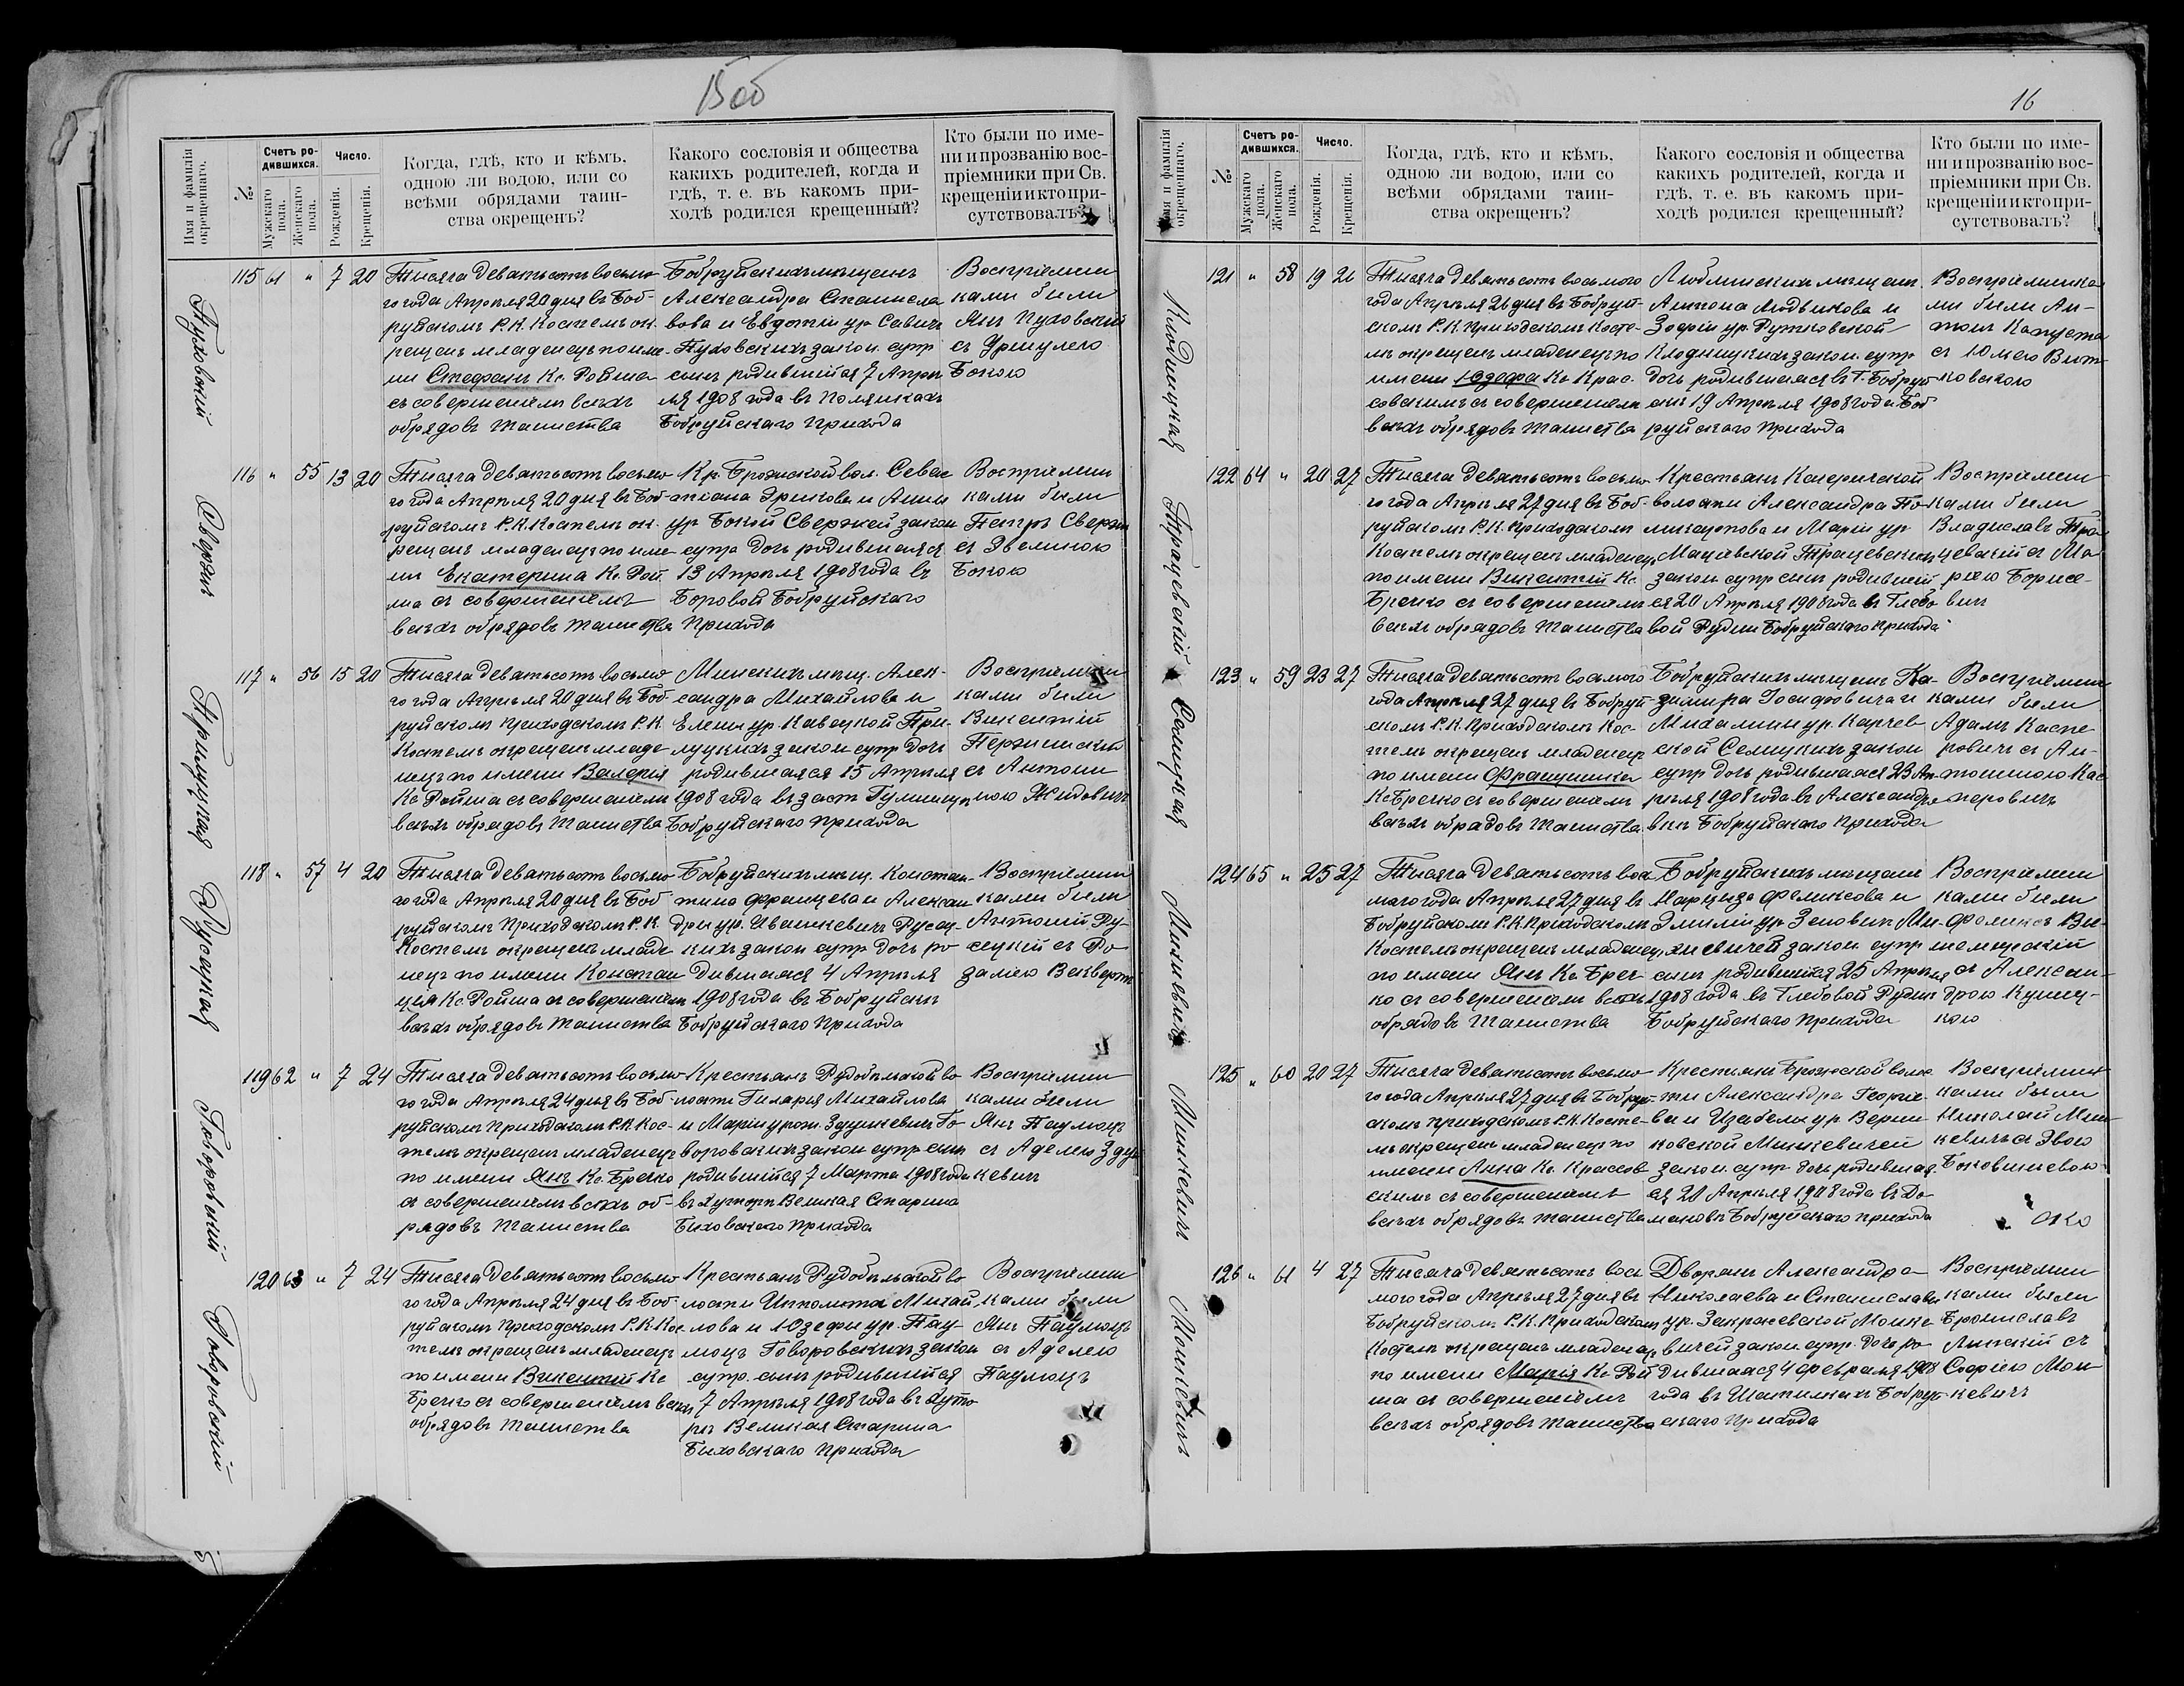 15 об
Имя и фамилія окрещеннаго.
№
Счетъ родившихся.
Мужскаго пола.
Женскаго пола.
Число.
Рожденія.
Крещенія.
Когда, гдѣ, кто и кѣмъ,
одною ли водою, или со
всѣми обрядами таин-
ства окрещенъ?
Какого сословія и общества
какихъ родителей, когда и
гдѣ, т. е. въ какомъ при-
ходѣ родился крещенный?
Кто были по име-
ни и прозванію вос-
пріемники при Св.
крещеніи и кто при-
сутствовалъ?
Пуховскій
115 61 " 7 20
Тысяча девятьсотъ восьмо
го года Апрѣля 20 дня въ Боб-
руйскомъ Р. К. Костелѣ ок-
рещенъ младенецъ по име-
ни Стефанъ Кс. Ройша
съ совершеніемъ всѣхъ
обрядовъ таинства
Бобруйскихъ мѣщанъ
Александра Станисла
вова и Евдотіи ур. Савичъ
Пуховскихъ закон. супр
сынъ родившійся 7 Апрѣ
ля 1908 года въ Полянкахъ
Бобруйскаго Прихода
Воспріемни
ками были
Янъ Пуховскій
съ Уршулею
Бокою
Свержъ
116 " 55 13 20
Тысяча девятьсотъ восьмо
го года Апрѣля 20 дня въ Боб-
руйскомъ Р. К. Костелѣ ок-
рещенъ младенецъ по име-
ни Екатерина Кс. Рой
ша съ совершеніемъ
всѣхъ обрядовъ таинства
Кр. Брожской вол. Севас
тіана Эрикова и Анны
ур Бокой Свержей закон
супр дочь родившаяся
13 Апрѣля 1908 года въ
Боровой Бобруйскаго
Прихода
Воспріемни
ками были
Петръ Сверж
съ Эвелиною
Бокою
Прилуцкая
117 " 56 15 20
Тысяча девятьсотъ восьмо
го года Апрѣля 20 дня въ Боб-
руйскомъ приходскомъ Р. К.
Костелѣ окрещенъ младе
нецъ по имени Валерія
Кс Ройша съ совершеніемъ
всѣхъ обрядовъ таинства
Минскихъ мѣщ. Алек-
сандра Михайлова и
Елены ур. Кавецкой При-
луцкихъ закон супр дочь
родившаяся 15 Апрѣля
1908 года въ заст
Бобруйскаго прихода
Воспріемни
ками были
Викентій
съ Антони
ною Жидовичъ
Русецкая
118 " 57 4 20
Тысяча девятьсотъ восьмо
го года Апрѣля 20 дня въ Боб
руйскомъ Приходскомъ Р. К.
Костелѣ окрещенъ младе
нецъ по имени Констан
ція Кс Ройша съ совершеніемъ
всѣхъ обрядовъ таинства
Бобруйскихъ мѣщ. Констан-
тина Францева и Алексан
дры ур. Ивашкевичъ Русец-
кихъ закон супр дочь ро
дившаяся 4 Апрѣля
1908 года въ Бобруйскѣ
Бобруйскаго прихода
Воспріемни
ками были
Антоній Ру-
сецкій съ Ро
заліею
Говоровскій
119 62 " 7 24
Тысяча девятьсотъ восьмо
го года Апрѣля 24 дня въ Боб-
руйскомъ Приходскомъ Р. К. Кос-
телѣ окрещенъ младенецъ
по имени Янъ Кс. Бречко
съ совершеніемъ всѣхъ об-
рядовъ таинства
Крестьянъ Рудобѣльской во
лости Гиларія Михайлова
и Маріи урож. Здушкевичъ Го-
воровскихъ закон супр сынъ
родившійся 7 Марта 1908 года
въ хуторѣ Великая Старина
Быховскаго прихода
Воспріемни
ками были
Янъ Наумецъ
съ Аделею Зду
кевичъ
Говоровскій
120 63 " 7 24
Тысяча девятьсотъ восьмо
го года Апрѣля 24 дня въ Боб
руйскомъ приходскомъ Р. К. Кос
телѣ окрещенъ младенецъ
по имени Викентій Кс
Бречко съ совершеніемъ всѣхъ
обрядовъ таинства
Крестьянъ Рудобѣльской во
лости Ипполита Михай
лова и Юзефы ур. Нау-
мецъ Говоровскихъ закон
супр. сынъ родившійся
7 Апрѣля 1908 года въ хуто
рѣ Великая Старина
Быховскаго прихода
Воспріемни
ками были
Янъ Наумецъ
съ Аделею
Наумецъ
16
Имя и фамилія окрещеннаго.
№
Счетъ родившихся.
Мужскаго пола.
Женскаго пола.
Число.
Рожденія.
Крещенія.
Когда, гдѣ, кто и кѣмъ,
одною ли водою, или со
всѣми обрядами таин-
ства окрещенъ?
Какого сословія и общества
какихъ родителей, когда и
гдѣ, т. е. въ какомъ при-
ходѣ родился крещенный?
Кто были по име-
ни и прозванію вос-
пріемники при Св.
крещеніи и кто при-
сутствовалъ?
Клодницкая
121 " 58 19 26
Тысяча девятьсотъ восьмого
года Апрѣля 26 дня въ Бобруй-
скомъ Р. К. Приходскомъ Косте-
лѣ окрещенъ младенецъ по
имени Юзефа Кс Крас-
совскимъ съ совершеніемъ
всѣхъ обрядовъ таинства
Люблинскихъ мѣщан.
Антона Людвикова и
Зофіи ур. Рутковской
Клодницкихъ закон. супр
дочь родившаяся въ г. Бобруй
скѣ 19 Апрѣля 1908 года Боб
руйскаго прихода
Воспріемника
ми были Ан-
тонъ Капуста
съ Юліею Вит-
ковскою
Трацевскій
122 64 " 20 27
Тысяча девятьсотъ восьмо
го года Апрѣля 27 дня въ Боб-
руйскомъ Р. К. Приходскомъ
Костелѣ окрещенъ младенец
по имени Викентій Кс
Бречко съ совершеніемъ
всѣхъ обрядовъ таинства
Крестьянъ Качеричской
волости Александра По-
ликарпова и Маріи ур
Мацѣвской Трацевскихъ
закон супр сынъ родившій
ся 20 Апрѣля 1908 года въ Глебо
вой Рудни Бобруйскаго прихода
Воспріемни
ками были
Владиславъ Тра
цевскій съ Ма
ріею Борисе-
вичъ
Селицкая
123 " 59 23 27
Тысяча девятьсотъ восьмого
года Апрѣля 27 дня въ Бобруй
скомъ Р. К. Приходскомъ Кос-
телѣ окрещенъ младенецъ
по имени Франциишка
Кс Бречко съ совершеніемъ
всѣхъ обрядовъ таинства
Бобруйскихъ мѣщанъ Ка-
зимира Іосифовича и
Михалины ур. Карчев
ской Селицкихъ закон
супр дочь родившаяся 23 Ап-
рѣля 1908 года въ Александро
вкѣ Бобруйскаго Прихода
Воспріемни
ками были
Адамъ Каспе
ровичъ съ Ан-
тониною Кас
перовичъ
Михневичъ
124 65 " 25 27
Тысяча девятьсотъ вос
мого года Апрѣля 27 дня въ
Бобруйскомъ Р. К. Приходскомъ
Костелѣ окрещенъ младенец
по имени Янъ Кс. Бреч-
ко съ совершеніемъ всѣхъ
обрядовъ таинства
Бобруйскихъ мѣщанъ
Марциза Феликсова и
Эмиліи ур. Зеновичъ Ми-
хневичей закон. супр
сынъ родившійся 25 Апрѣля
1908 года въ Глебовой Рудни
Бобруйскаго прихода
Воспріемни
ками были
Феликсъ Ви-
съ Алексан-
дрою
Минкевичъ
125 " 60 20 27
Тысяча девятьсотъ восьмо
го года Апрѣля 27 дня въ Бобруй-
скомъ приходскомъ Р. К. Косте-
лѣ окрещенъ младенецъ по
имени Анна Кс. Крассов
скимъ съ совершеніемъ
всѣхъ обрядовъ таинства
Крестьянъ Брожской волос
ти Александра Георгіе-
ва и Изабелы ур Верш
ковской Минкевичей
закон. супр дочь родившая
ся 20 Апрѣля 1908 года въ До
мановѣ Бобруйскаго прихода
Воспріемни
ками были
Николай Мин
кевичъ съ Эвою
Моникевичъ
126 " 61 4 27
Тысяча девятьсотъ вось
мого года Апрѣля 27 дня въ
Бобруйскомъ Р. К. Приходскомъ
Костелѣ окрещенъ младенец
по имени Марія Кс. Рой
ша съ совершеніемъ
всѣхъ обрядовъ таинства
Дворянъ Александра
Николаева и Станиславы
ур. Закржевской Монке
вичей закон. супр. дочь ро
дившаяся 4 февраля 1908
года въ Шатилкахъ Бобруй
скаго прихода
Воспріемни
ками были
Брониславъ
Липскій съ
Софіею Мон
кевичъ